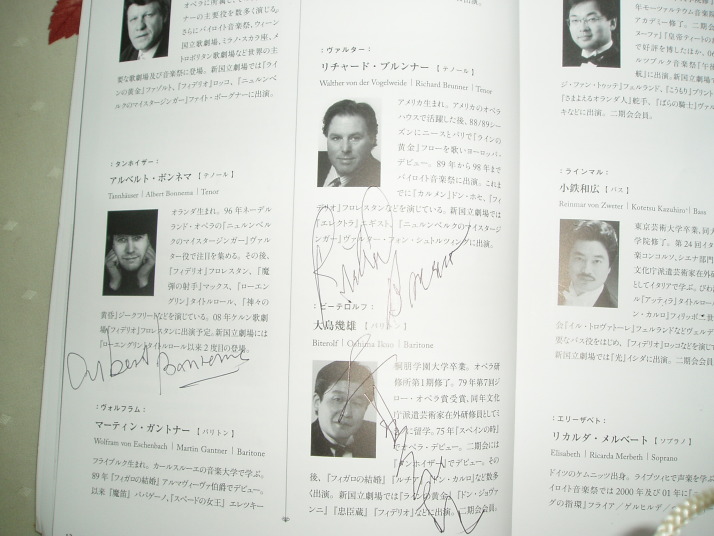 オペラに所属し、
ナーの主要役を数多く演じる。
さらにバイロイト音楽祭、ウィーン
国立歌劇場、ミラノ・スカラ座、メ
トロポリタン歌劇場など世界の主
要な歌劇場及び音楽祭に登場。新国立劇場では『ライ
ンの黄金』ファゾルト、『フィデリオ』ロッコ、『ニュルンベ
ルクのマイスタージンガー』ファイト・ポーグナーに出演。
：タンホイザー：
アルベルト・ボンネマ【テノール】
Tannhäuser | Albert Bonnema | Tenor
オランダ生まれ。96年ネーデル
ランド・オペラの『ニュルンベル
クのマイスタージンガー』ヴァル
ター役で注目を集める。その後、
『フィデリオ』フロレスタン、『魔
弾の射手』マックス、『ローエン
グリン』タイトルロール、『神々の
黄昏』ジークフリートなどを演じている。08年ケルン歌劇
場『フィデリオ』フロレスタンに出演予定。新国立劇場には
『ローエングリン』タイトルロール以来2度目の登場。
Albert Bonnema
：ヴォルフラム：
マーティン・ガントナー【バリトン】
Wolfram von Eschenbach | Martin Gantner | Baritone
フライブルク生まれ。カールスルーエの音楽大学で学ぶ。
89年『フィガロの結婚』アルマヴィーヴァ伯爵でデビュー。
以来『魔笛』パパゲーノ、『スペードの女王』エレツキー
に出演。
：ヴァルター：
リチャード・ブルンナー【テノール】
Walther von der Vogelweide | Richard Brunner | Tenor
アメリカ生まれ。アメリカのオペラ
ハウスで活躍した後、88/89シー
ズンにニースとパリで『ラインの
黄金』フローを歌いヨーロッパ・
デビュー。89年から98年まで
バイロイト音楽祭に出演。これま
でに『カルメン』ドン・ホセ、『フィ
デリオ』フロレスタンなどを演じている。新国立劇場では
『エレクトラ』エギスト、『ニュルンベルクのマイスタージ
ンガー』ヴァルター・フォン・シュトルツィングに出演。
：ビーテロルフ：
大島幾雄【バリトン】
Biterolf | Oshima Ikuo | Baritone
桐朋学園大学卒業。オペラ研
修所第1期修了。79年第7回ジ
ロー・オペラ賞受賞、同年文化
庁派遣芸術家在外研修員として
に留学。75年『スペインの時』
でオペラ・デビュー。二期会には
『タンホイザー』でデビュー。その
後、『フィガロの結婚』『ルチア』『ドン・カルロ』など数多
く出演。新国立劇場では『ラインの黄金』『ドン・ジョヴァ
ンニ』『忠臣蔵』『フィデリオ』などに出演。二期会会員。
年モーツァルテウム音楽
アカデミー修了。二期会
ヌーファ』『皇帝ティートの
で好評を博したほか、06
ルツブルク音楽祭『午後
航』に出演。新国立劇場
ジ・ファン・トゥッテ』フェルランド、『こうもり』
『さまよえるオランダ人』舵手、『ばらの騎士』ヴァル
キなどに出演。二期会会員。
：ラインマル：
小鉄和広【バス】
Reinmar von Zweter | Kotetsu Kazuhiro | Bass
東京芸術大学卒業、同大
学院修了。第24回イタ
楽コンコルソ、シエナ部門
文化庁派遣芸術家在外研
としてイタリアで学ぶ。びわ
ル『アッティラ』タイトルロール
ン・カルロ』フィリッポ二世
会『イル・トロヴァトーレ』フェルランドなどヴェルデ
要なバス役をはじめ、『フィデリオ』ロッコなどを演じ
新国立劇場では『光』インダに出演。二期会会員
：エリーザベト：
リカルダ・メルベート【ソプラノ】
Elisabeth | Ricarda Merbeth | Soprano
ドイツのケムニッツ出身。ライプツィヒで声楽を学ぶ。
イロイト音楽祭では2000年及び01年に『ニー
グの指環』フライア／ゲルヒルデ／